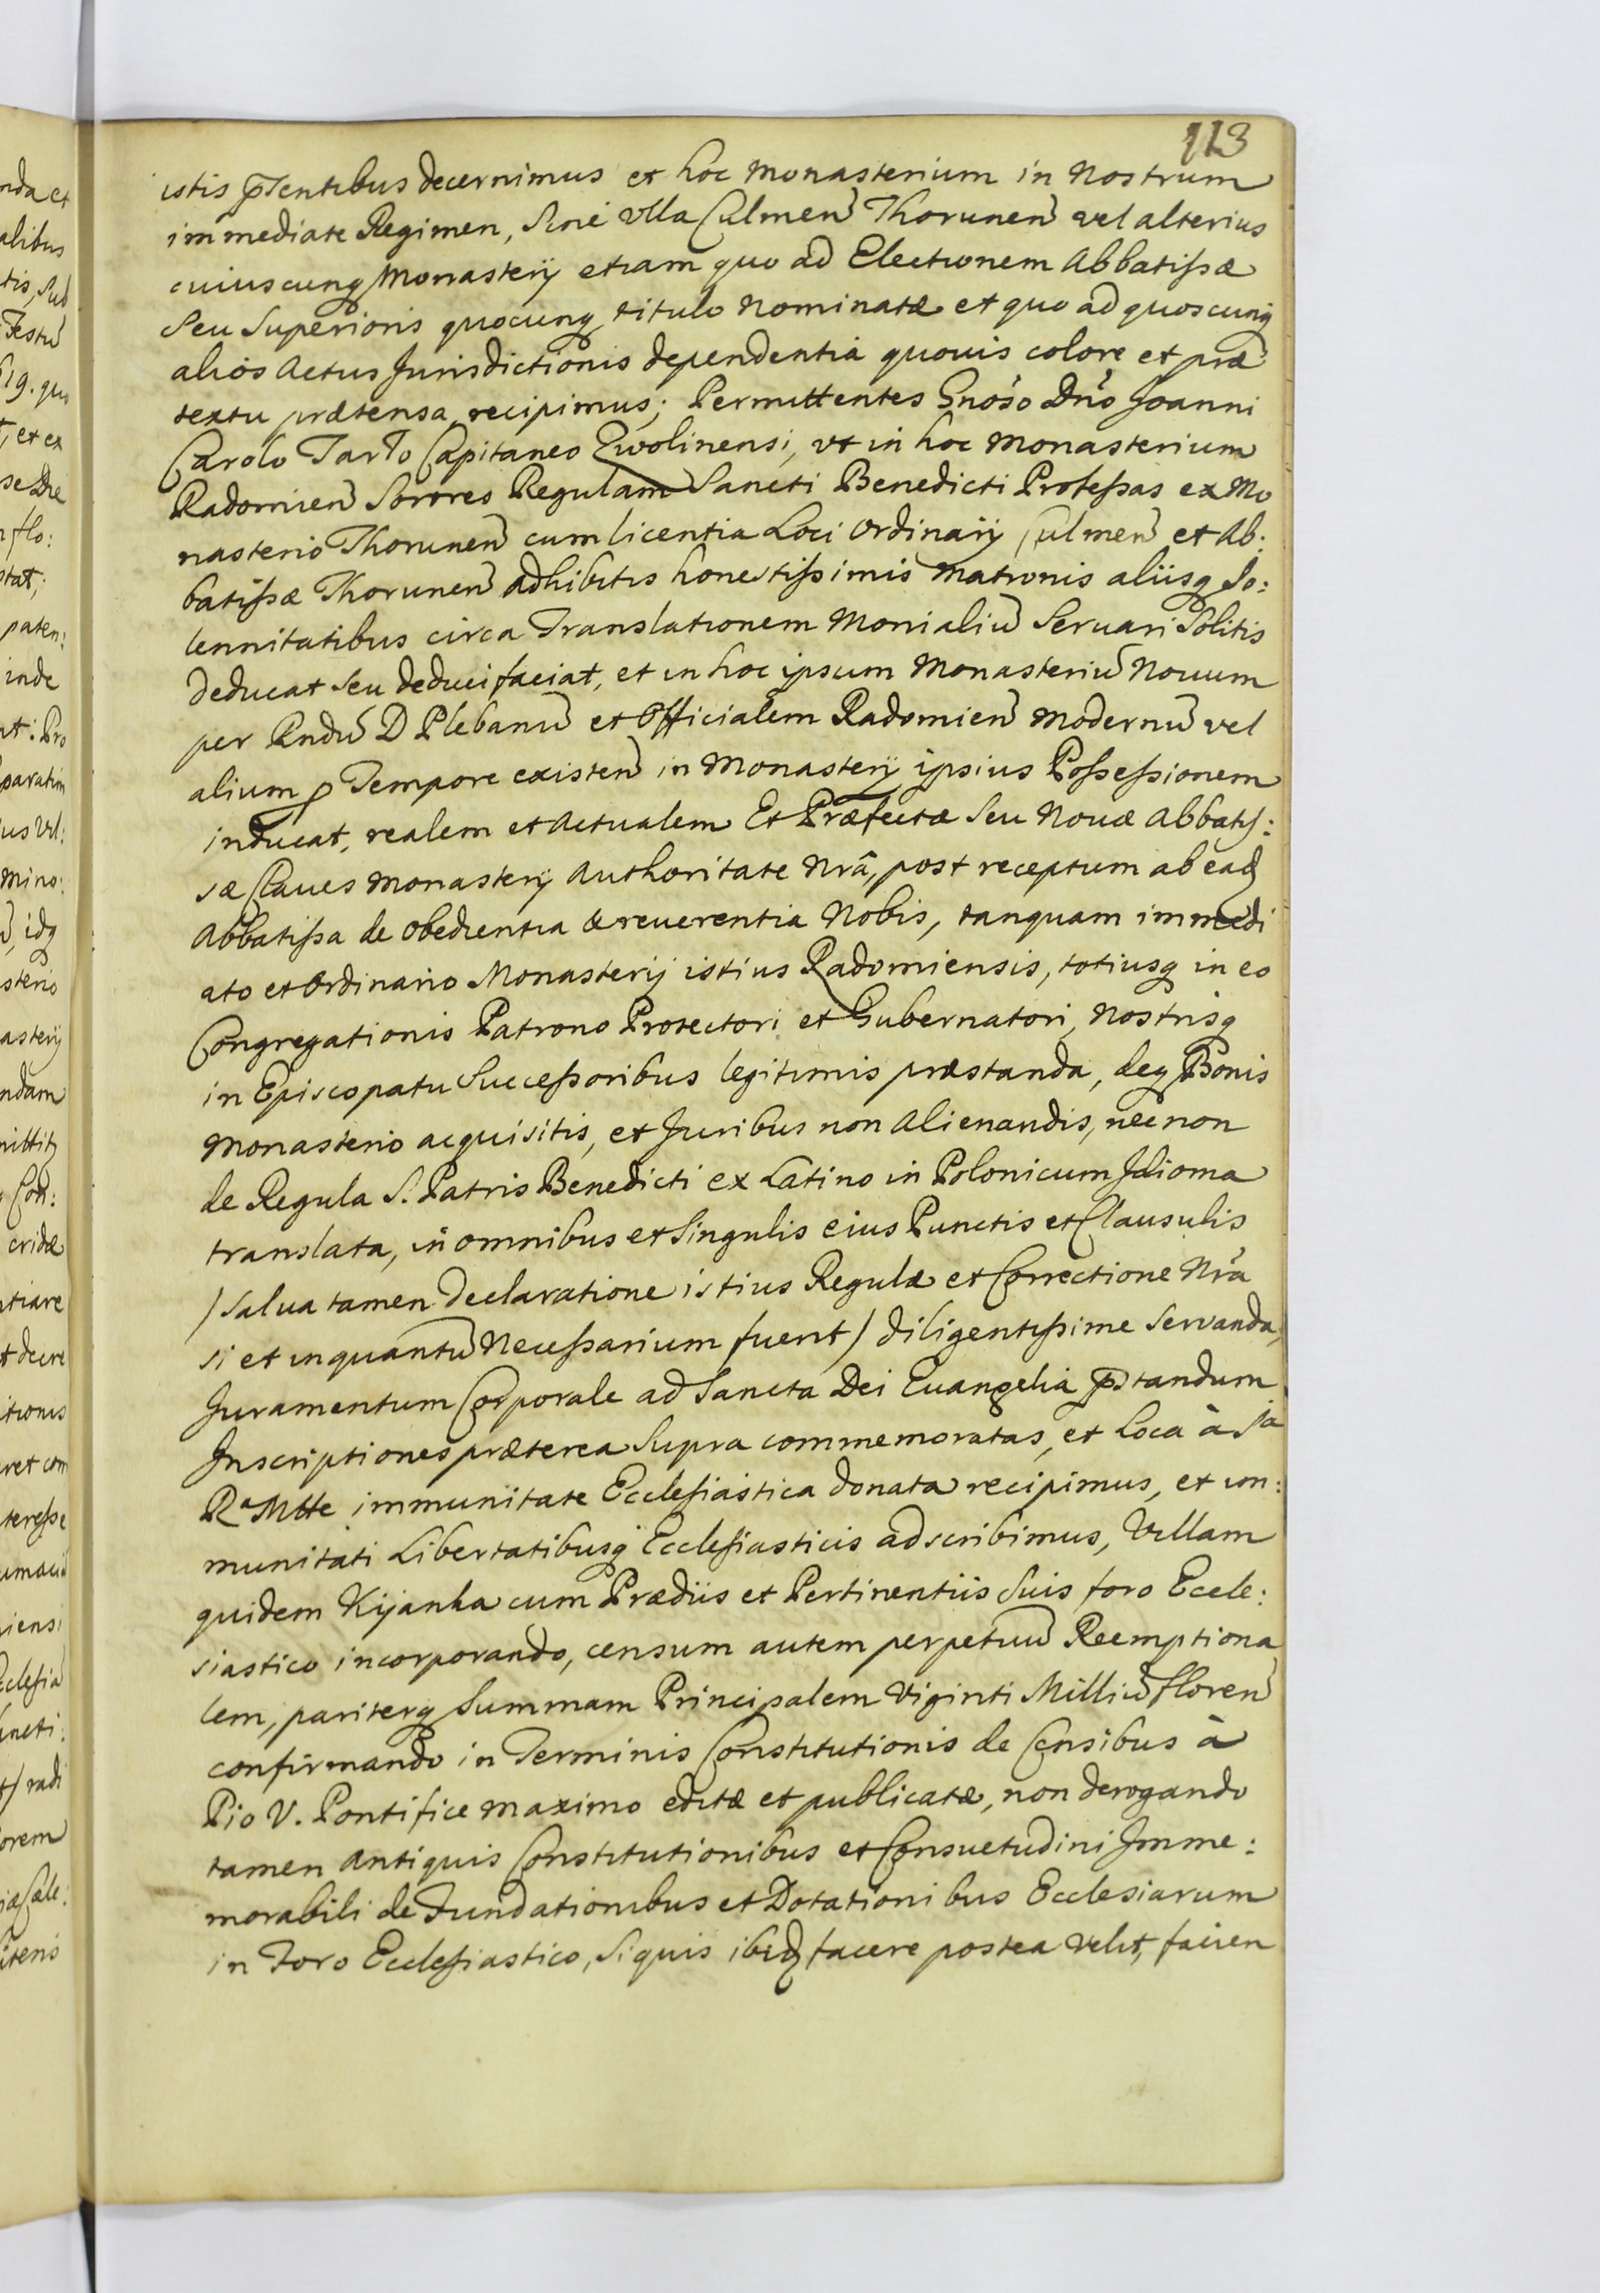 113
istis p̄sentibus decernimus et hoc Monasterium in Nostrum
immediate Regimen, Sine Vlla Culmen̄ Thorunen̄ vel alterius
cuiuscunq Monasterij etiam quo ad Electionem Abbatissæ
Seu Superioris quocunq titulo Nominatæ et quo ad quoscunq
alios Actus Jurisdictionis dependentia quouis colore et præ
textu prætensa recipimus; Permittentes Gnoso Dno Joanni
Carolo Tarlo Capitaneo Zwolinensi, vt in hoc Monasterium
Radomien̄ Sorores Regulam Sancti Benedicti Professas ex Mo
nasterio Thorunen̄ cum licentia Loci Ordinarij Culmen̄ et Ab:
batissæ Thorunen̄ adhibitis honestissimis Matronis aliisq So:
lennitatibus circa Translationem Monialiū Seruari Solitis
deducat seu deduci faciat, et in hoc ipsum Monasteriū Nouum
per Rndū D Plebanū et Officialem Radomien̄ Modernū vel
alium p Tempore existen̄ in Monasterij ipsius Possessionem
inducat, realem et Actualem Et Præfectæ Seu Nouæ Abbatis:
sæ Claues Monasterij Authoritate Nrâ, post receptum ab eadͅ
Abbatissa de Obedientia & reuerentia Nobis, tanquam immedi
ato et Ordinario Monasterij istius Radomiensis, totiusq in eo
Congregationis Patrono Protectori et Gubernatori, Nostrisq
in Episcopatu Successoribus legitimis præstanda, deq Bonis
Monasterio acquisitis, et Juribus non Alienandis, nec non
de Regula S. Patris Benedicti ex Latino in Polonicum Idioma
translata, in omnibus et Singulis eius Punctis et Clausulis
/Salua tamen declaratione istius Regulæ et Correctione Nra
si et inquantū Necessarium fuerit/ diligentissime Servanda,
Juramentum Corporale ad Sancta Dei Euangelia p̄standum
Inscriptiones præterea Supra commemoratas, et Loca à Sa
Ra Mtte immunitate Ecclesiastica donata recipimus, et im:
munitati Libertatibusq Ecclesiasticis adscribimus, Villam
quidem Kijanka cum Prædiis et Pertinentiis Suis foro Eccle:
siastico incorporando, censum autem perpetuū Reemptiona
lem, pariterq Summam Principalem Viginti Milliū floren̄
confirmando in Terminis Constitutionis de Censibus à
Pio V. Pontifice Maximo editæ et publicatæ, non derogando
tamen Antiquis Constitutionibus et Consuetudini Imme:
morabili de Fundationibus et Dotationibus Ecclesiarum
in Foro Ecclesiastico, Siquis ibidͅ facere postea velit, facien